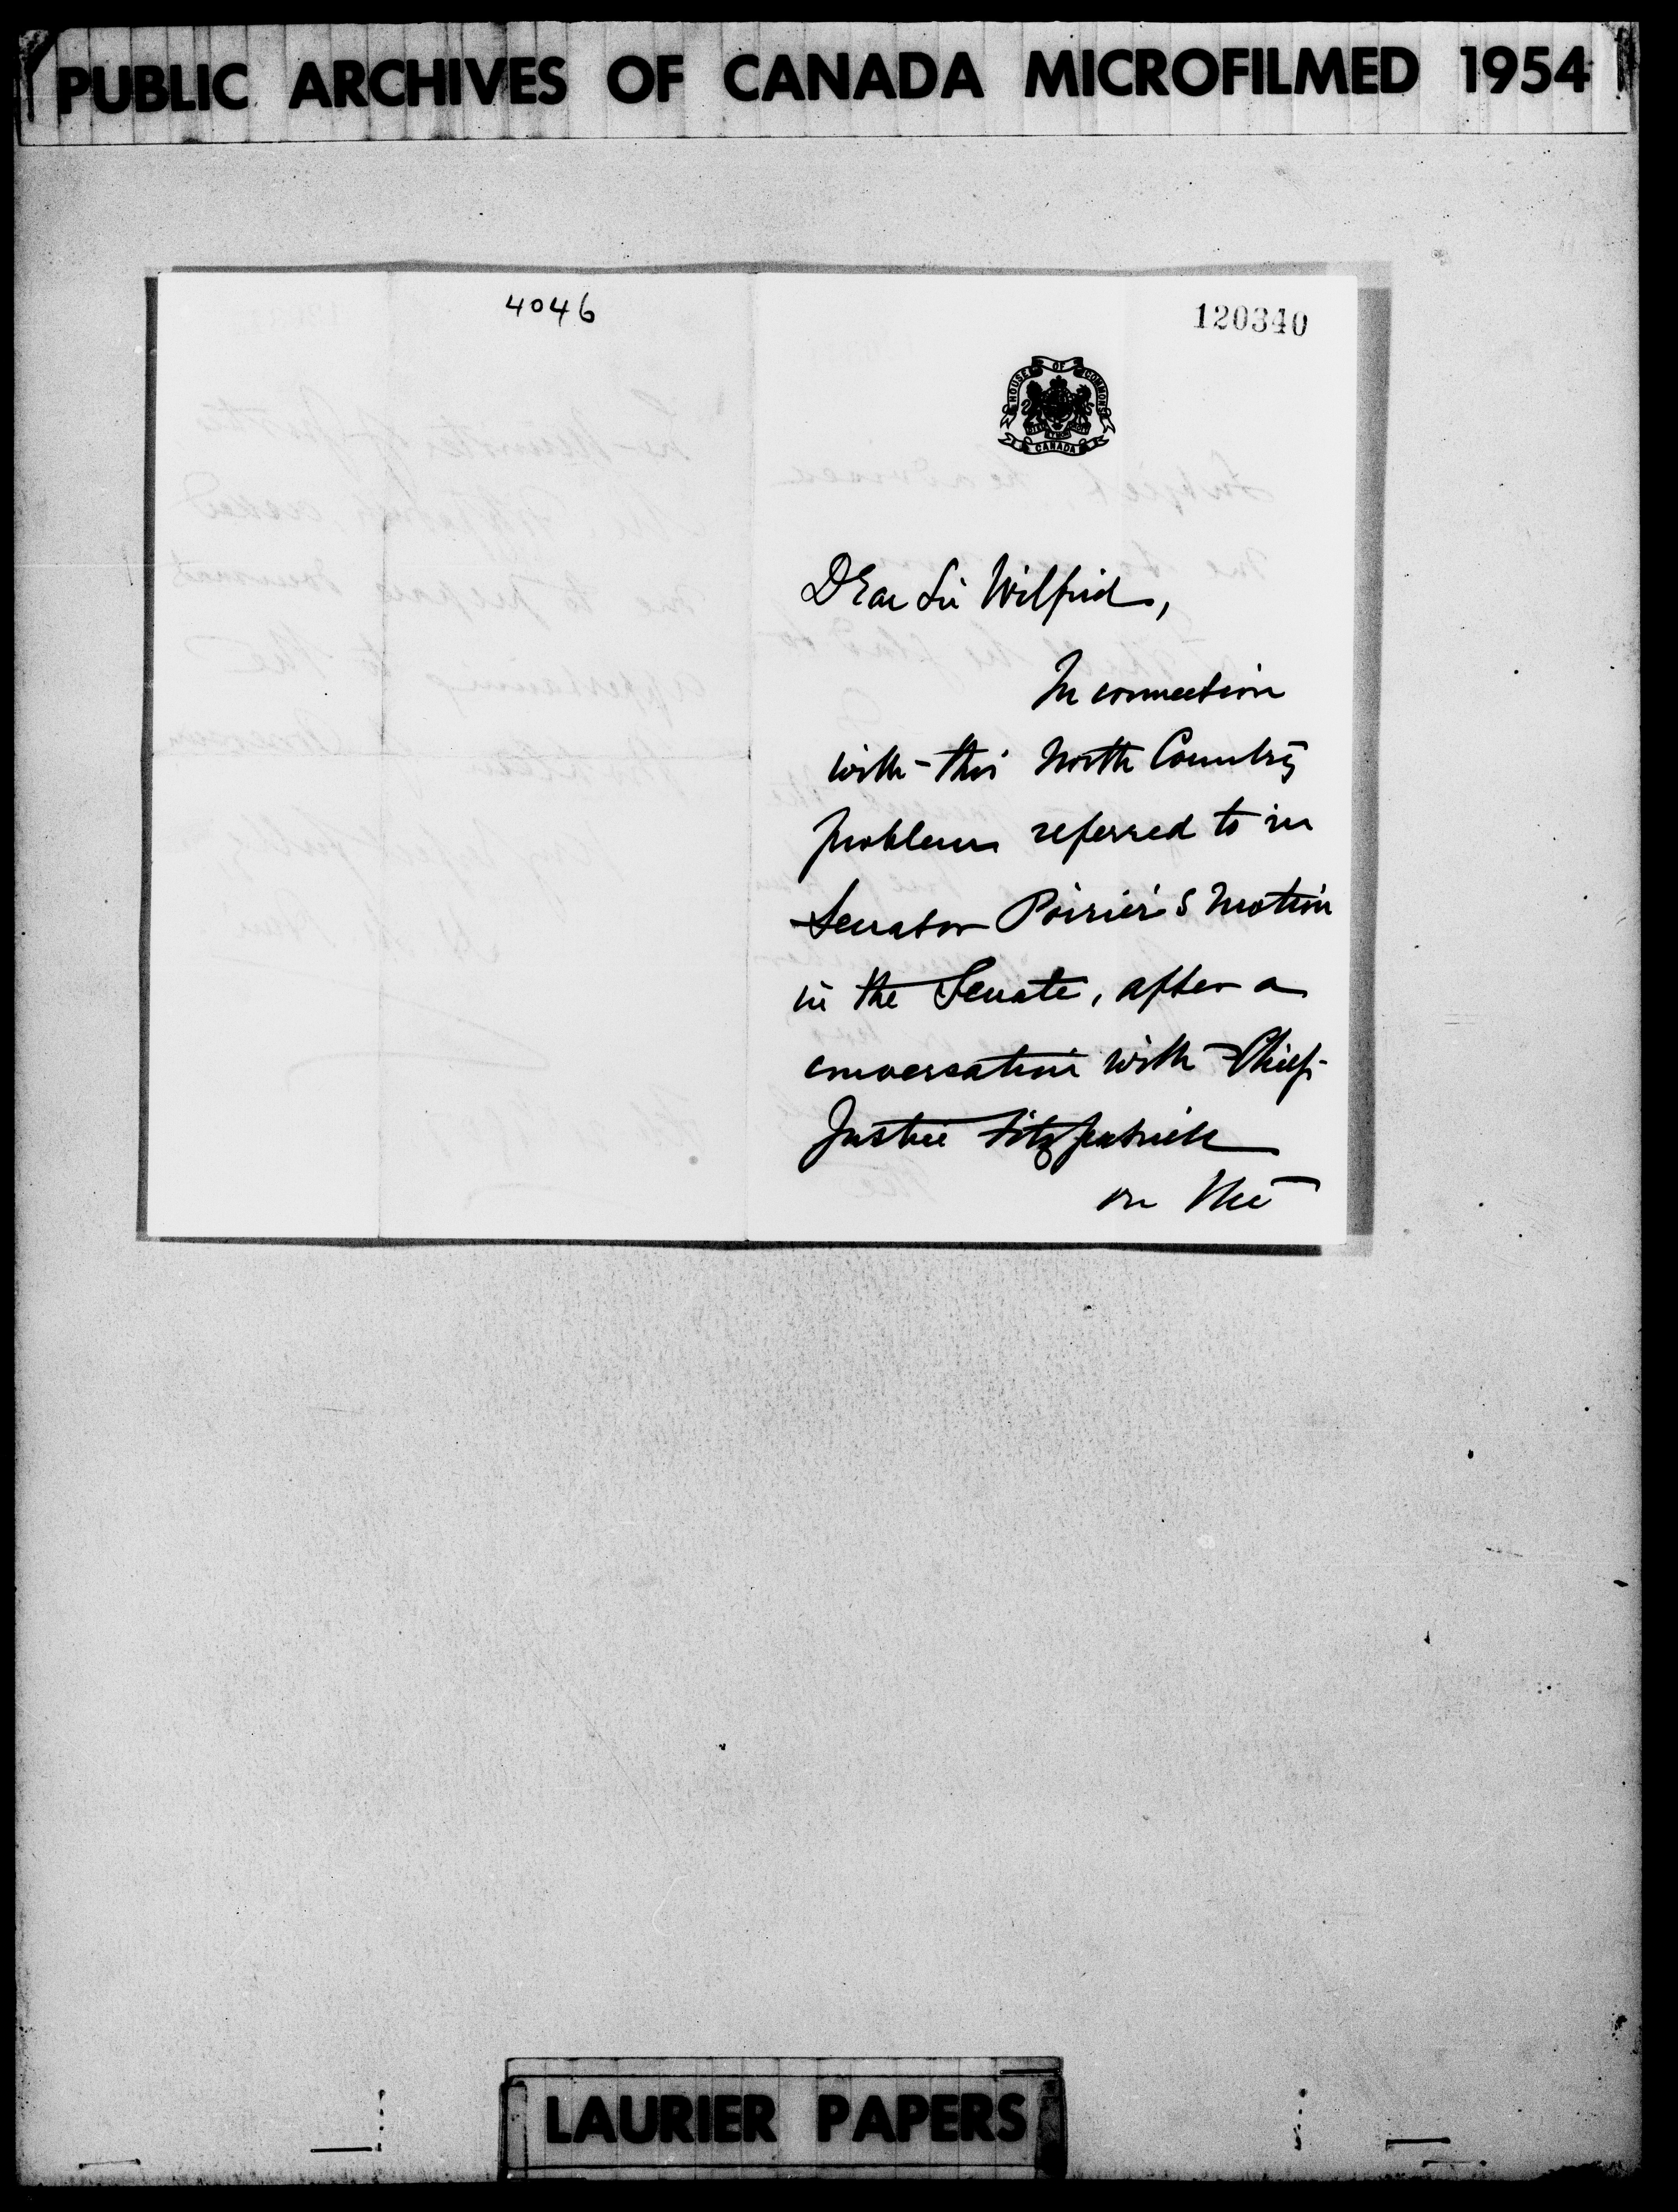 PUBLIC ARCHIVES OF CANADA MICROFILMED 1954
4046
120340
HOUSE OF COMMONS
CANADA
Dear Sir Wilfrid,
In connection
with this North Country
problem referred to in
Senator Poirier's motion
in the Senate, after a
conversation with Chief
Justice Fitzpatrick
on the
LAURIER PAPERS